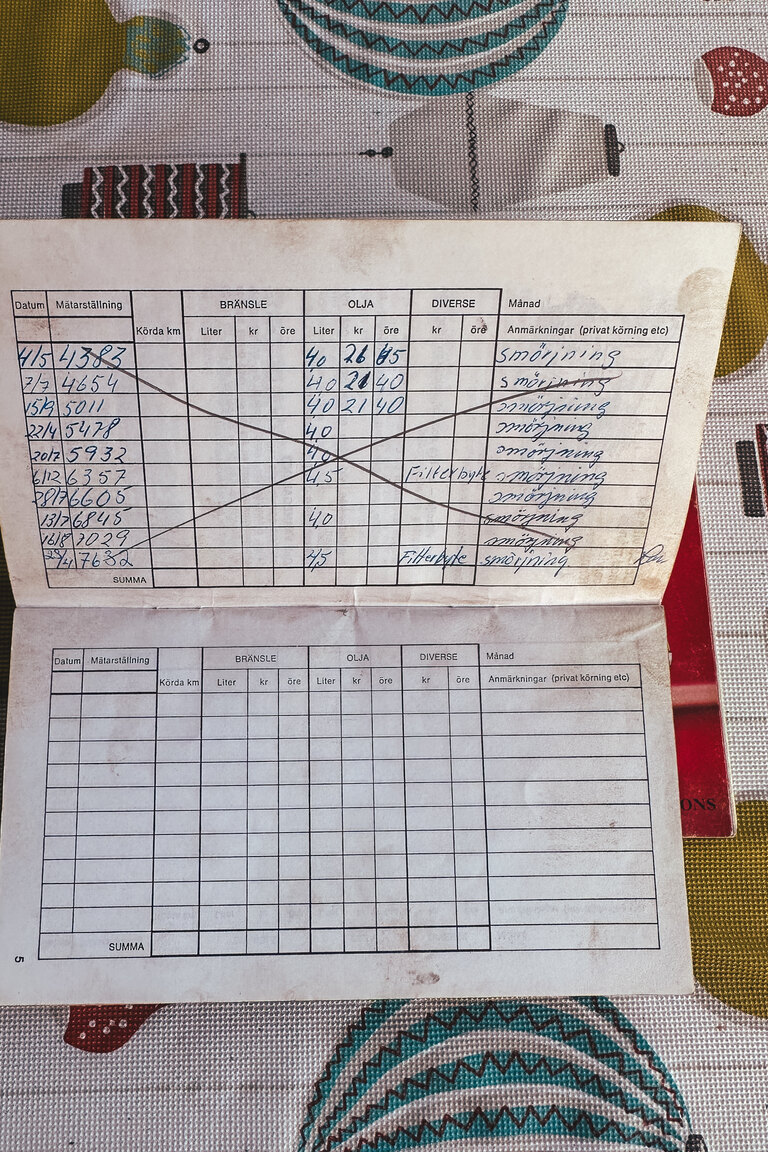 Datum Mätarställning Körda km BRÄNSLE OLJA DIVERSE Månad
Liter kr öre Liter kr öre kr öre Anmärkningar (privat körning etc)
4/5 4383 4,0 21 85 smörjning
7/7 4654 4,0 21 40 smörjning
15/9 5011 4,0 21 40 smörjning
22/4 5478 4,0 smörjning
20/7 5932 4,0 smörjning
6/12 6357 4,5 Filterbyte smörjning
28/7 6605 smörjning
13/7 6845 4,0 smörjning
16/8 7029 smörjning
28/4 7632 4,5 Filterbyte smörjning
SUMMA
Datum Mätarställning Körda km BRÄNSLE OLJA DIVERSE Månad
Liter kr öre Liter kr öre kr öre Anmärkningar (privat körning etc)
SUMMA
5
ONS